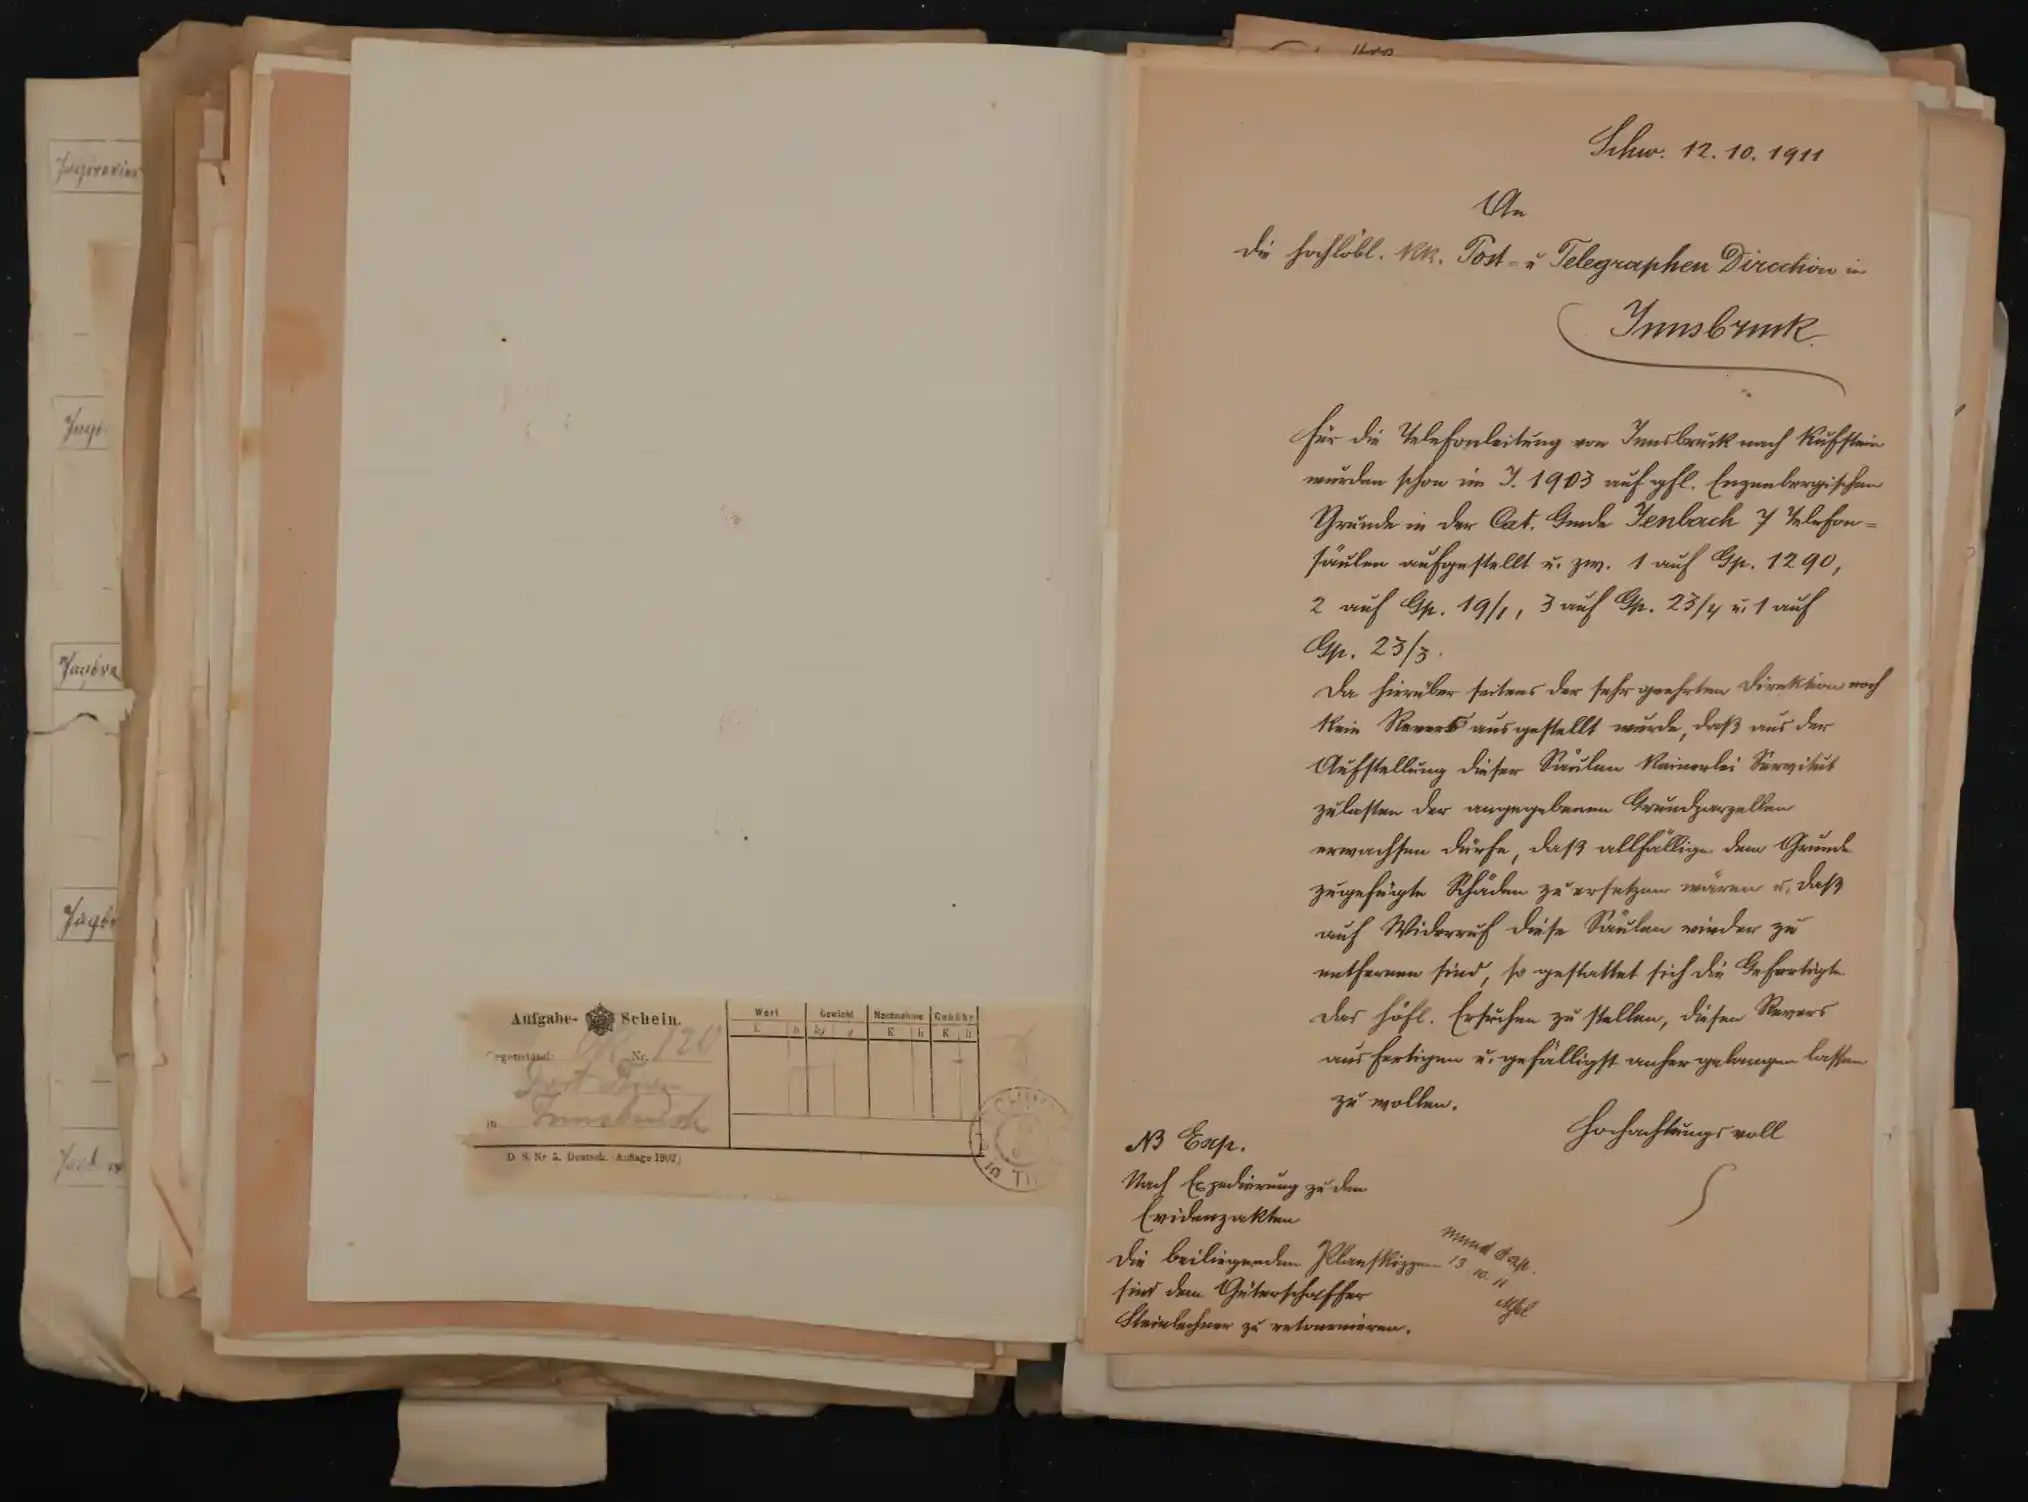 Aufgabe- Schein.
Gegenstand: Nr. 120
Post Dion
in Innsbruck
D. S. Nr. 5. Deutsch. Auflage 1907
Wert Gewicht Nachnahme Gebühr
K h kg g K h K h
Schw. 12.10.1911
An
die hochlöbl. kk. Post- u Telegraphen Direction in
Innsbruck.
Für die Telefonleitung von Innsbruck nach Kufstein
wurden schon im J. 1903 auf gfl. Enzenbergischen
Grunde in der Cat. Gmde Jenbach 7 Telefon=
säulen aufgestellt u. zw. 1 auf Gp. 1290,
2 auf Gp. 19/1, 3 auf Gp. 23/4 u. 1 auf
Gp. 23/3.
Da hierüber seitens der sehr geehrten Direktion noch
kein Revers ausgestellt wurde, daß aus der
Aufstellung dieser Säulen keinerlei Servitut
zulasten der angegebenen Grundparzellen
erwachsen dürfe, daß allfällige dem Grunde
zugefügte Schäden zu ersetzen wären u. daß
auf Widerruf diese Säulen wieder zu
entfernen sind, so gestattet sich die Gefertigte
das höfl. Ersuchen zu stellen, diesen Revers
ausfertigen u. gefälligst anher gelangen lassen
zu wollen.
Hochachtungsvoll
NB Exp.
Nach Expedierung zu den
Evidenzakten
Die beiliegenden Planskizzen
sind dem Güterschaffer
Steinlechner zu retournieren.
mund Exp.
13.10.11